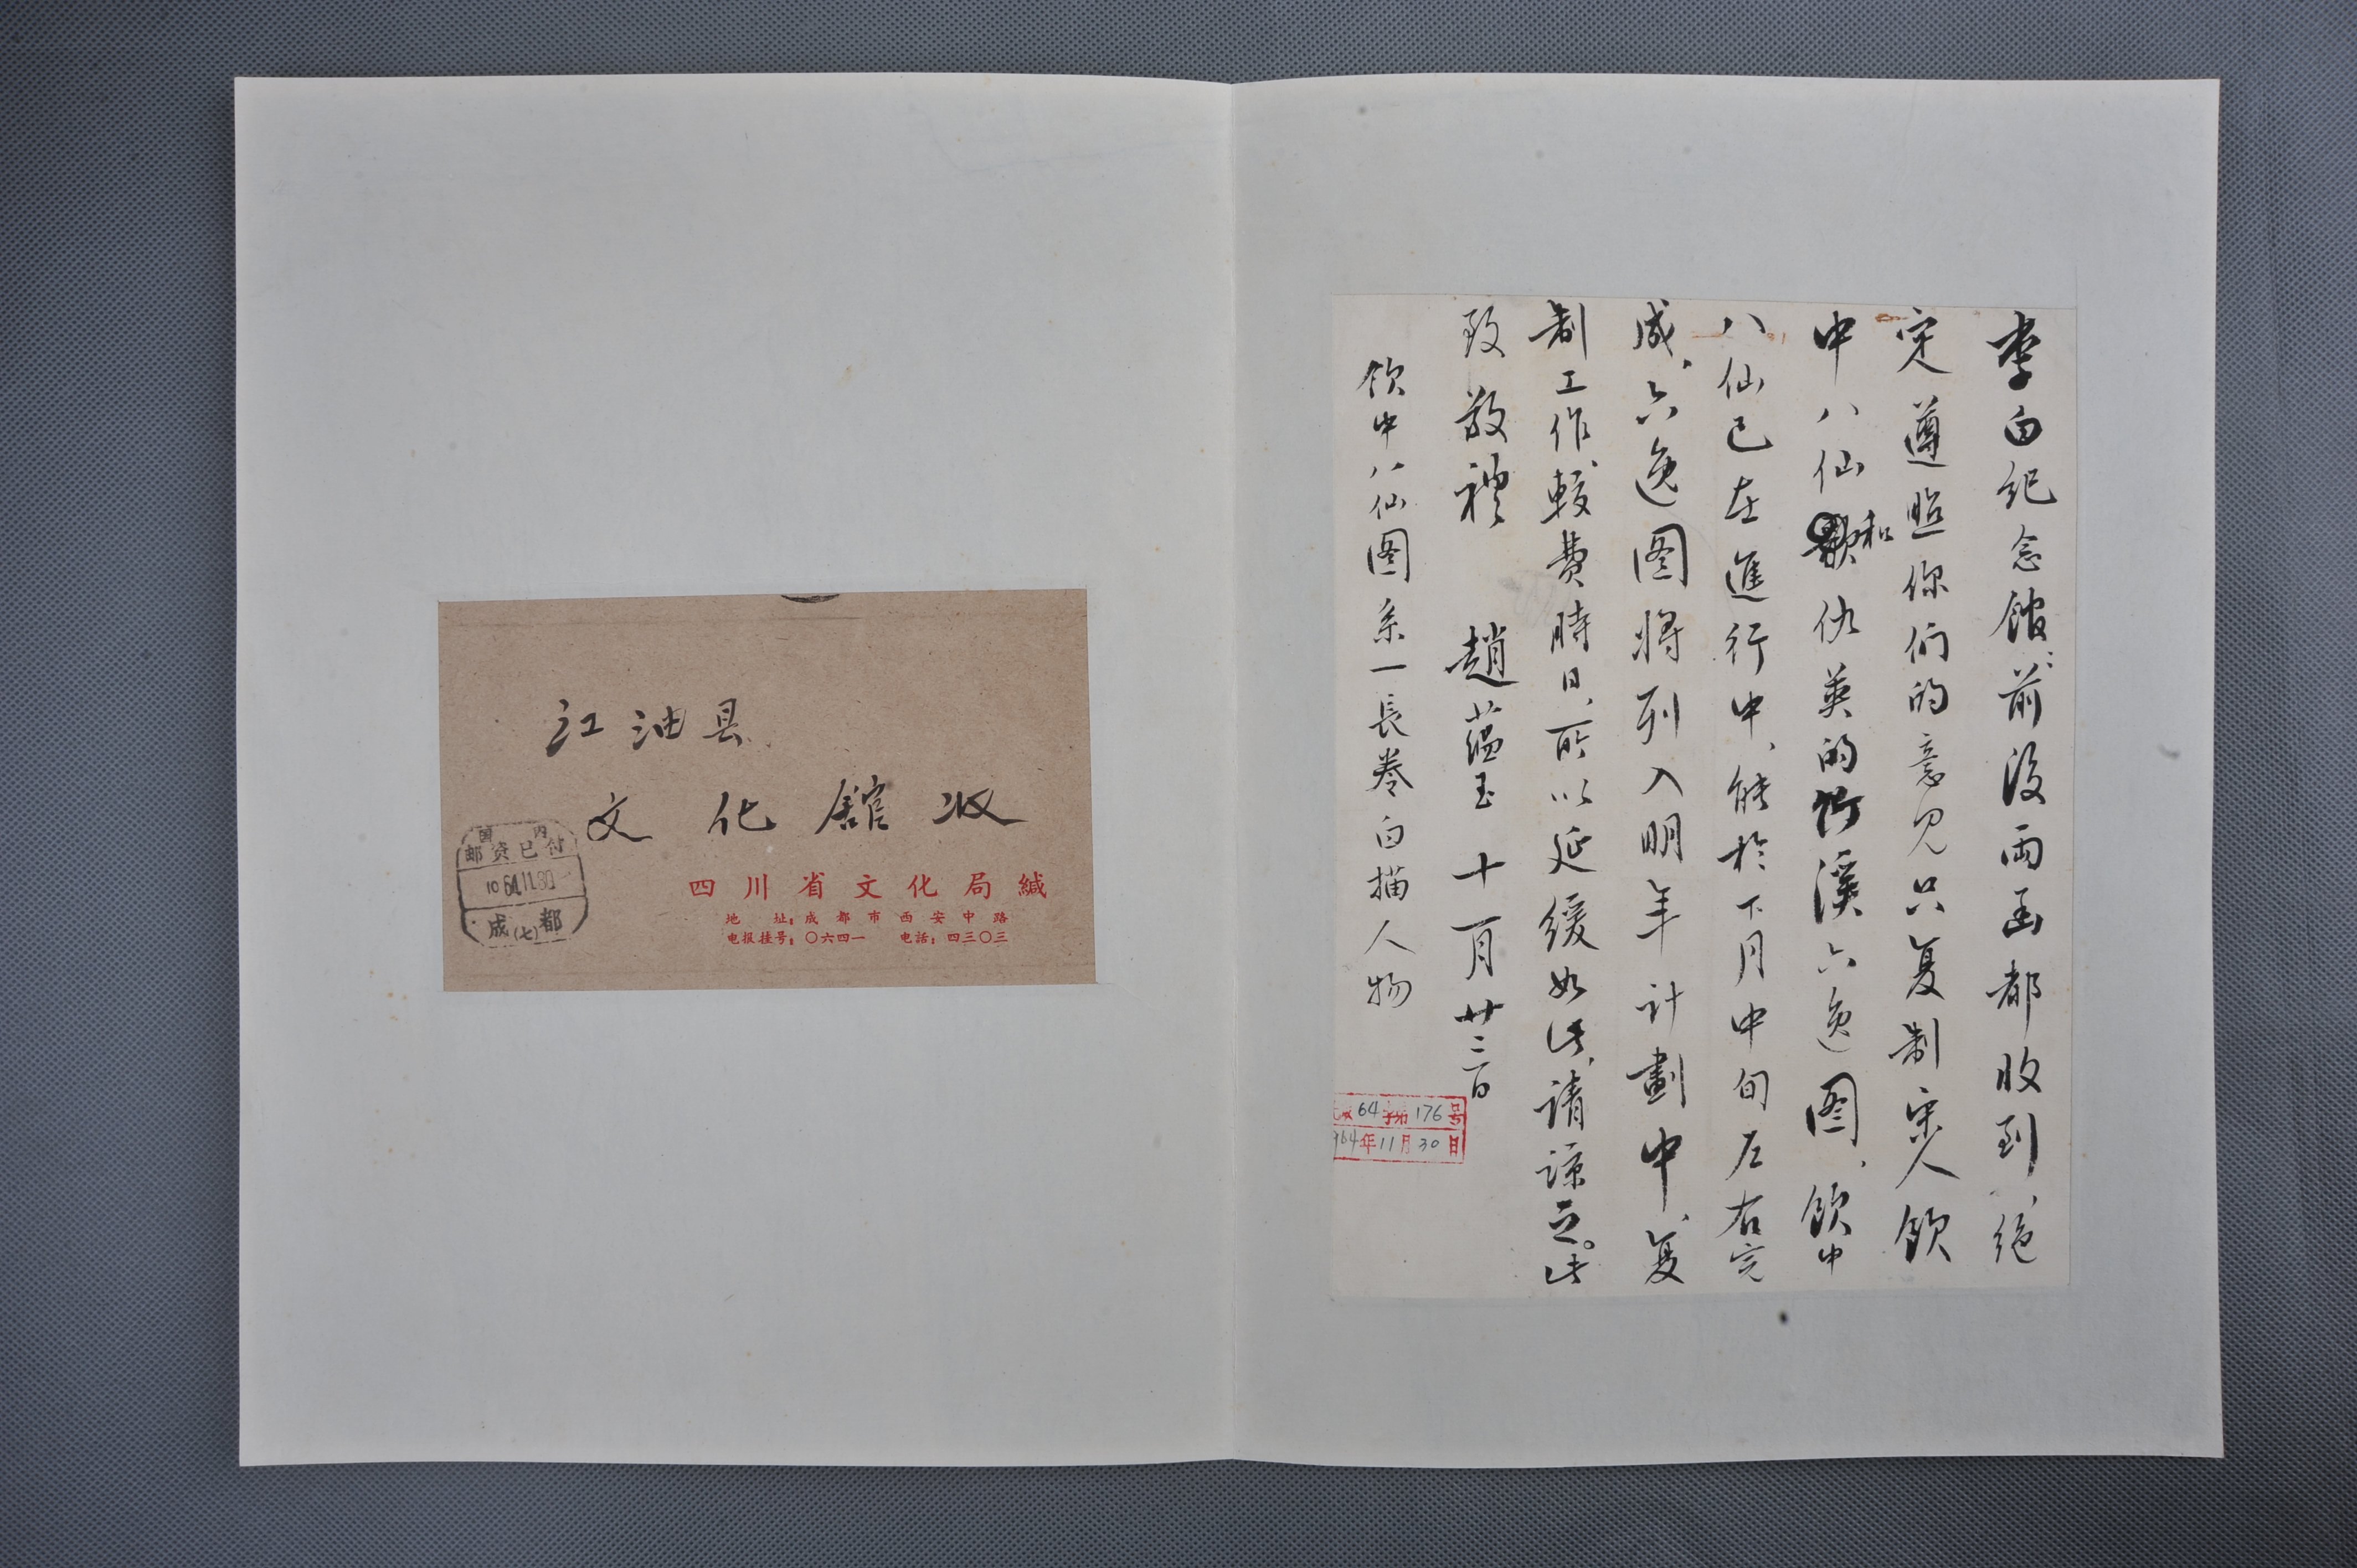 李白纪念館：前後两函都收到、绝
定遵照你们的意见只复制宋人飲
中八仙和仇英的竹溪六逸图，飲中
八仙已在進行中，能於下月中旬左右完
成，六逸图将列入明年计劃中，复
制工作較費時日，所以延缓如此，请諒之。此
致敬禮 趙蕴玉 十一月廿二日
飲中八仙图系一長卷白描人物
64字第176号
964年11月30日
江油县
文化館收
四川省文化局緘
地址：成都市西安中路
电报挂号：〇六四一 电話：四三〇三
国内
邮资已付
10 64.11.30
成(七)都